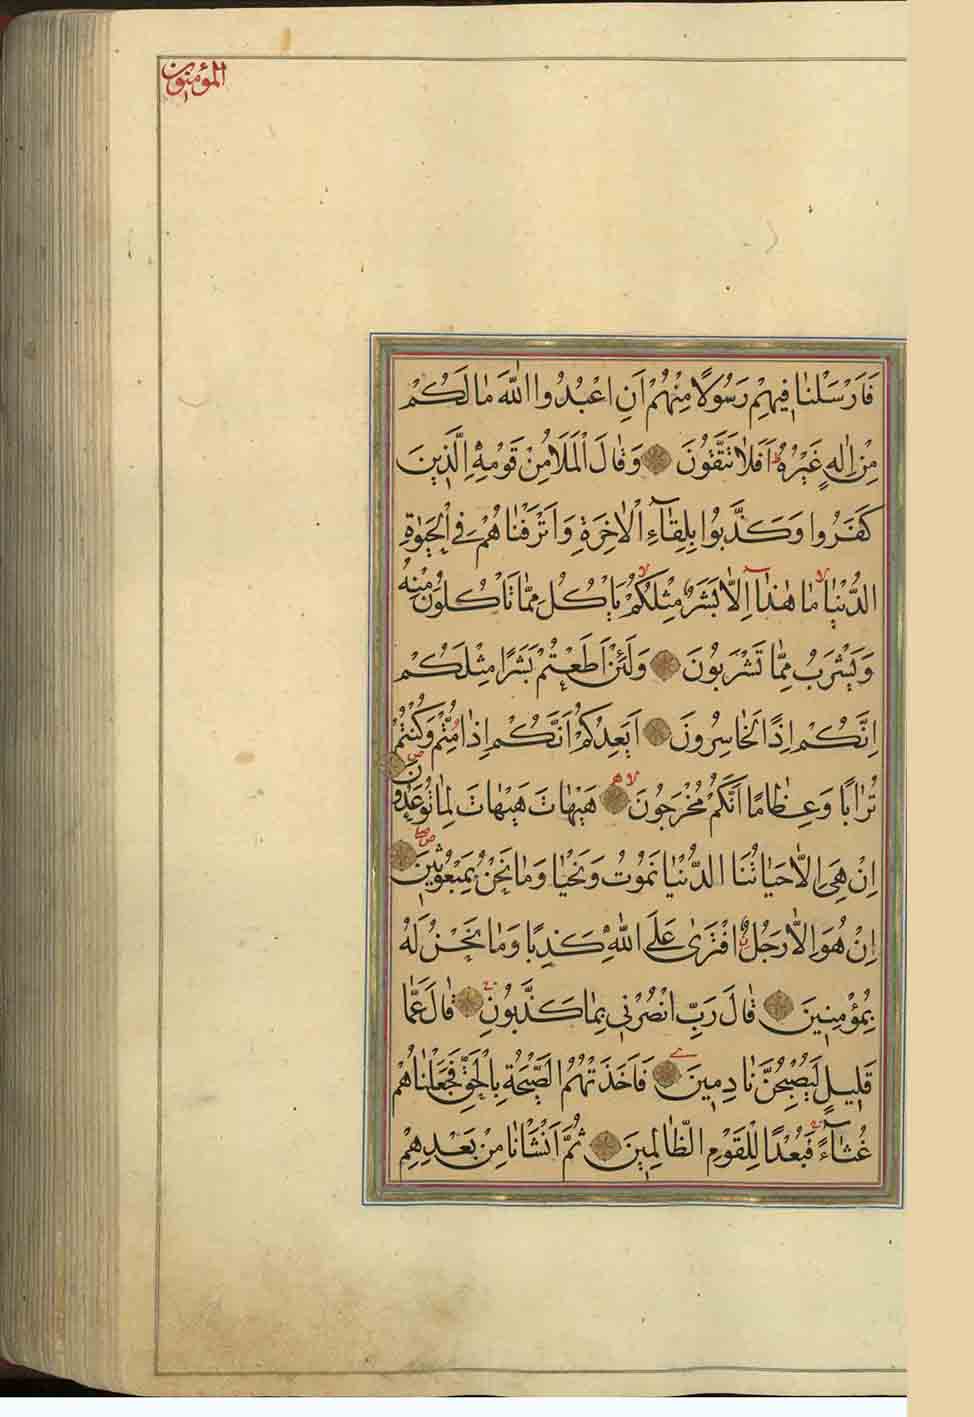 المؤمنون
فَاَرْسَلْنَا فِيهِمْ رَسُولًا مِنْهُمْ اَنِ اعْبُدُوا اللّٰهَ مَا لَكُمْ
مِنْ اِلٰهٍ غَيْرُهُ ط اَفَلَا تَتَّقُونَ وَقَالَ الْمَلَاُ مِنْ قَوْمِهِ الَّذِينَ
كَفَرُوا وَكَذَّبُوا بِلِقَآءِ الْاٰخِرَةِ وَاَتْرَفْنَاهُمْ فِي الْحَيٰوةِ
الدُّنْيَا لا مَا هٰذَآ اِلَّا بَشَرٌ مِثْلُكُمْ لا يَاْكُلُ مِمَّا تَاْكُلُونَ مِنْهُ
وَيَشْرَبُ مِمَّا تَشْرَبُونَ وَلَئِنْ اَطَعْتُمْ بَشَرًا مِثْلَكُمْ
اِنَّكُمْ اِذًا لَخَاسِرُونَ اَيَعِدُكُمْ اَنَّكُمْ اِذَا مِتُّمْ وَكُنْتُمْ
تُرَابًا وَعِظَامًا اَنَّكُمْ مُخْرَجُونَ لا هَيْهَاتَ هَيْهَاتَ لِمَا تُوعَدُونَ ص
اِنْ هِيَ اِلَّا حَيَاتُنَا الدُّنْيَا نَمُوتُ وَنَحْيَا وَمَا نَحْنُ بِمَبْعُوثِينَ
اِنْ هُوَ اِلَّا رَجُلٌ افْتَرٰى عَلَى اللّٰهِ كَذِبًا وَمَا نَحْنُ لَهُ
بِمُؤْمِنِينَ قَالَ رَبِّ انْصُرْنِي بِمَا كَذَّبُونِ قَالَ عَمَّا
قَلِيلٍ لَيُصْبِحُنَّ نَادِمِينَ فَاَخَذَتْهُمُ الصَّيْحَةُ بِالْحَقِّ فَجَعَلْنَاهُمْ
غُثَآءً فَبُعْدًا لِلْقَوْمِ الظَّالِمِينَ ثُمَّ اَنْشَاْنَا مِنْ بَعْدِهِمْ